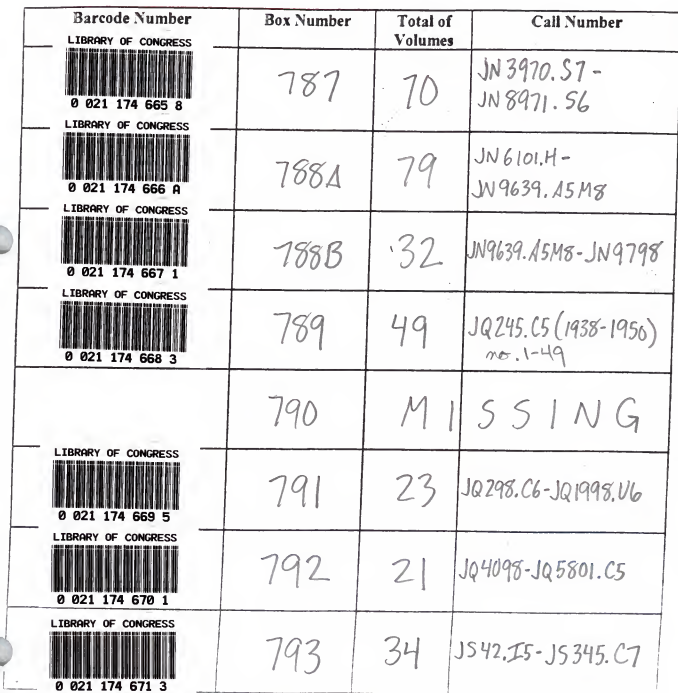 Barcode Number Box Number Total of Volumes Call Number
LIBRARY OF CONGRESS
0 021 174 665 8
787 70 JN 3970.S7-
JN 8971.S6
LIBRARY OF CONGRESS
0 021 174 666 A
788A 79 JN 6101.H-
JN 9639.A5M8
LIBRARY OF CONGRESS
0 021 174 667 1
788B 32 JN9639.A5M8-JN9798
LIBRARY OF CONGRESS
0 021 174 668 3
789 49 JQ245.C5 (1938-1950)
no. 1-49
790 MISSING
LIBRARY OF CONGRESS
0 021 174 669 5
791 23 JQ298.C6-JQ1998.U6
LIBRARY OF CONGRESS
0 021 174 670 1
792 21 JQ4098-JQ5801.C5
LIBRARY OF CONGRESS
0 021 174 671 3
793 34 JS42.I5-JS345.C7